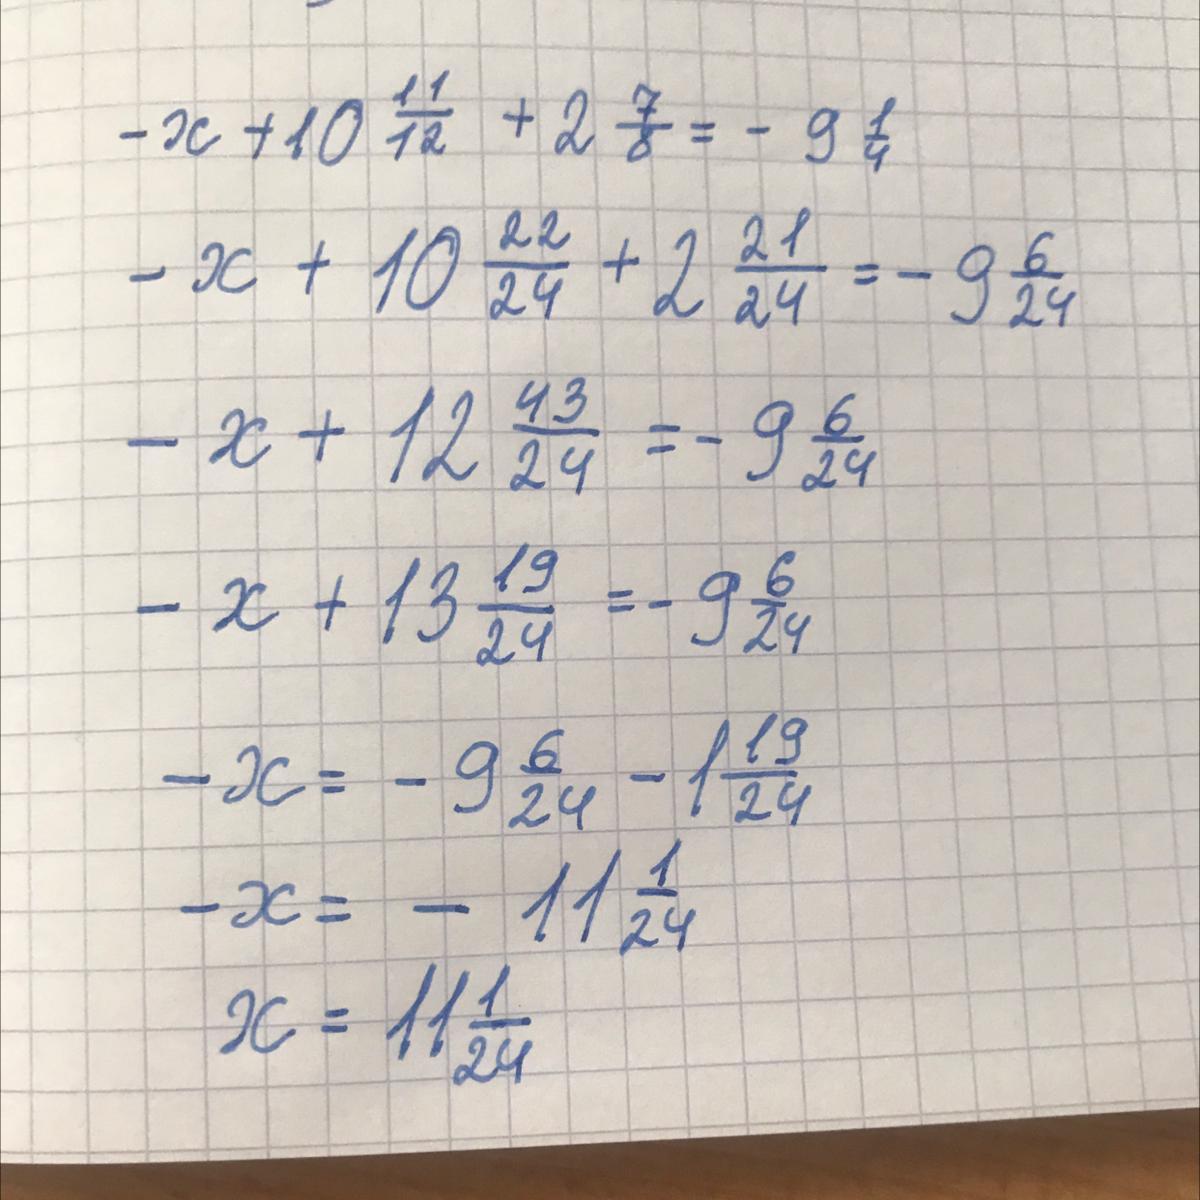 -x + 10 11/12 + 2 7/8 = - 9 1/4
- x + 10 22/24 + 2 21/24 = - 9 6/24
- x + 12 43/24 = - 9 6/24
- x + 13 19/24 = - 9 6/24
- x = - 9 6/24 - 1 19/24
- x = - 11 1/24
x = 11 1/24